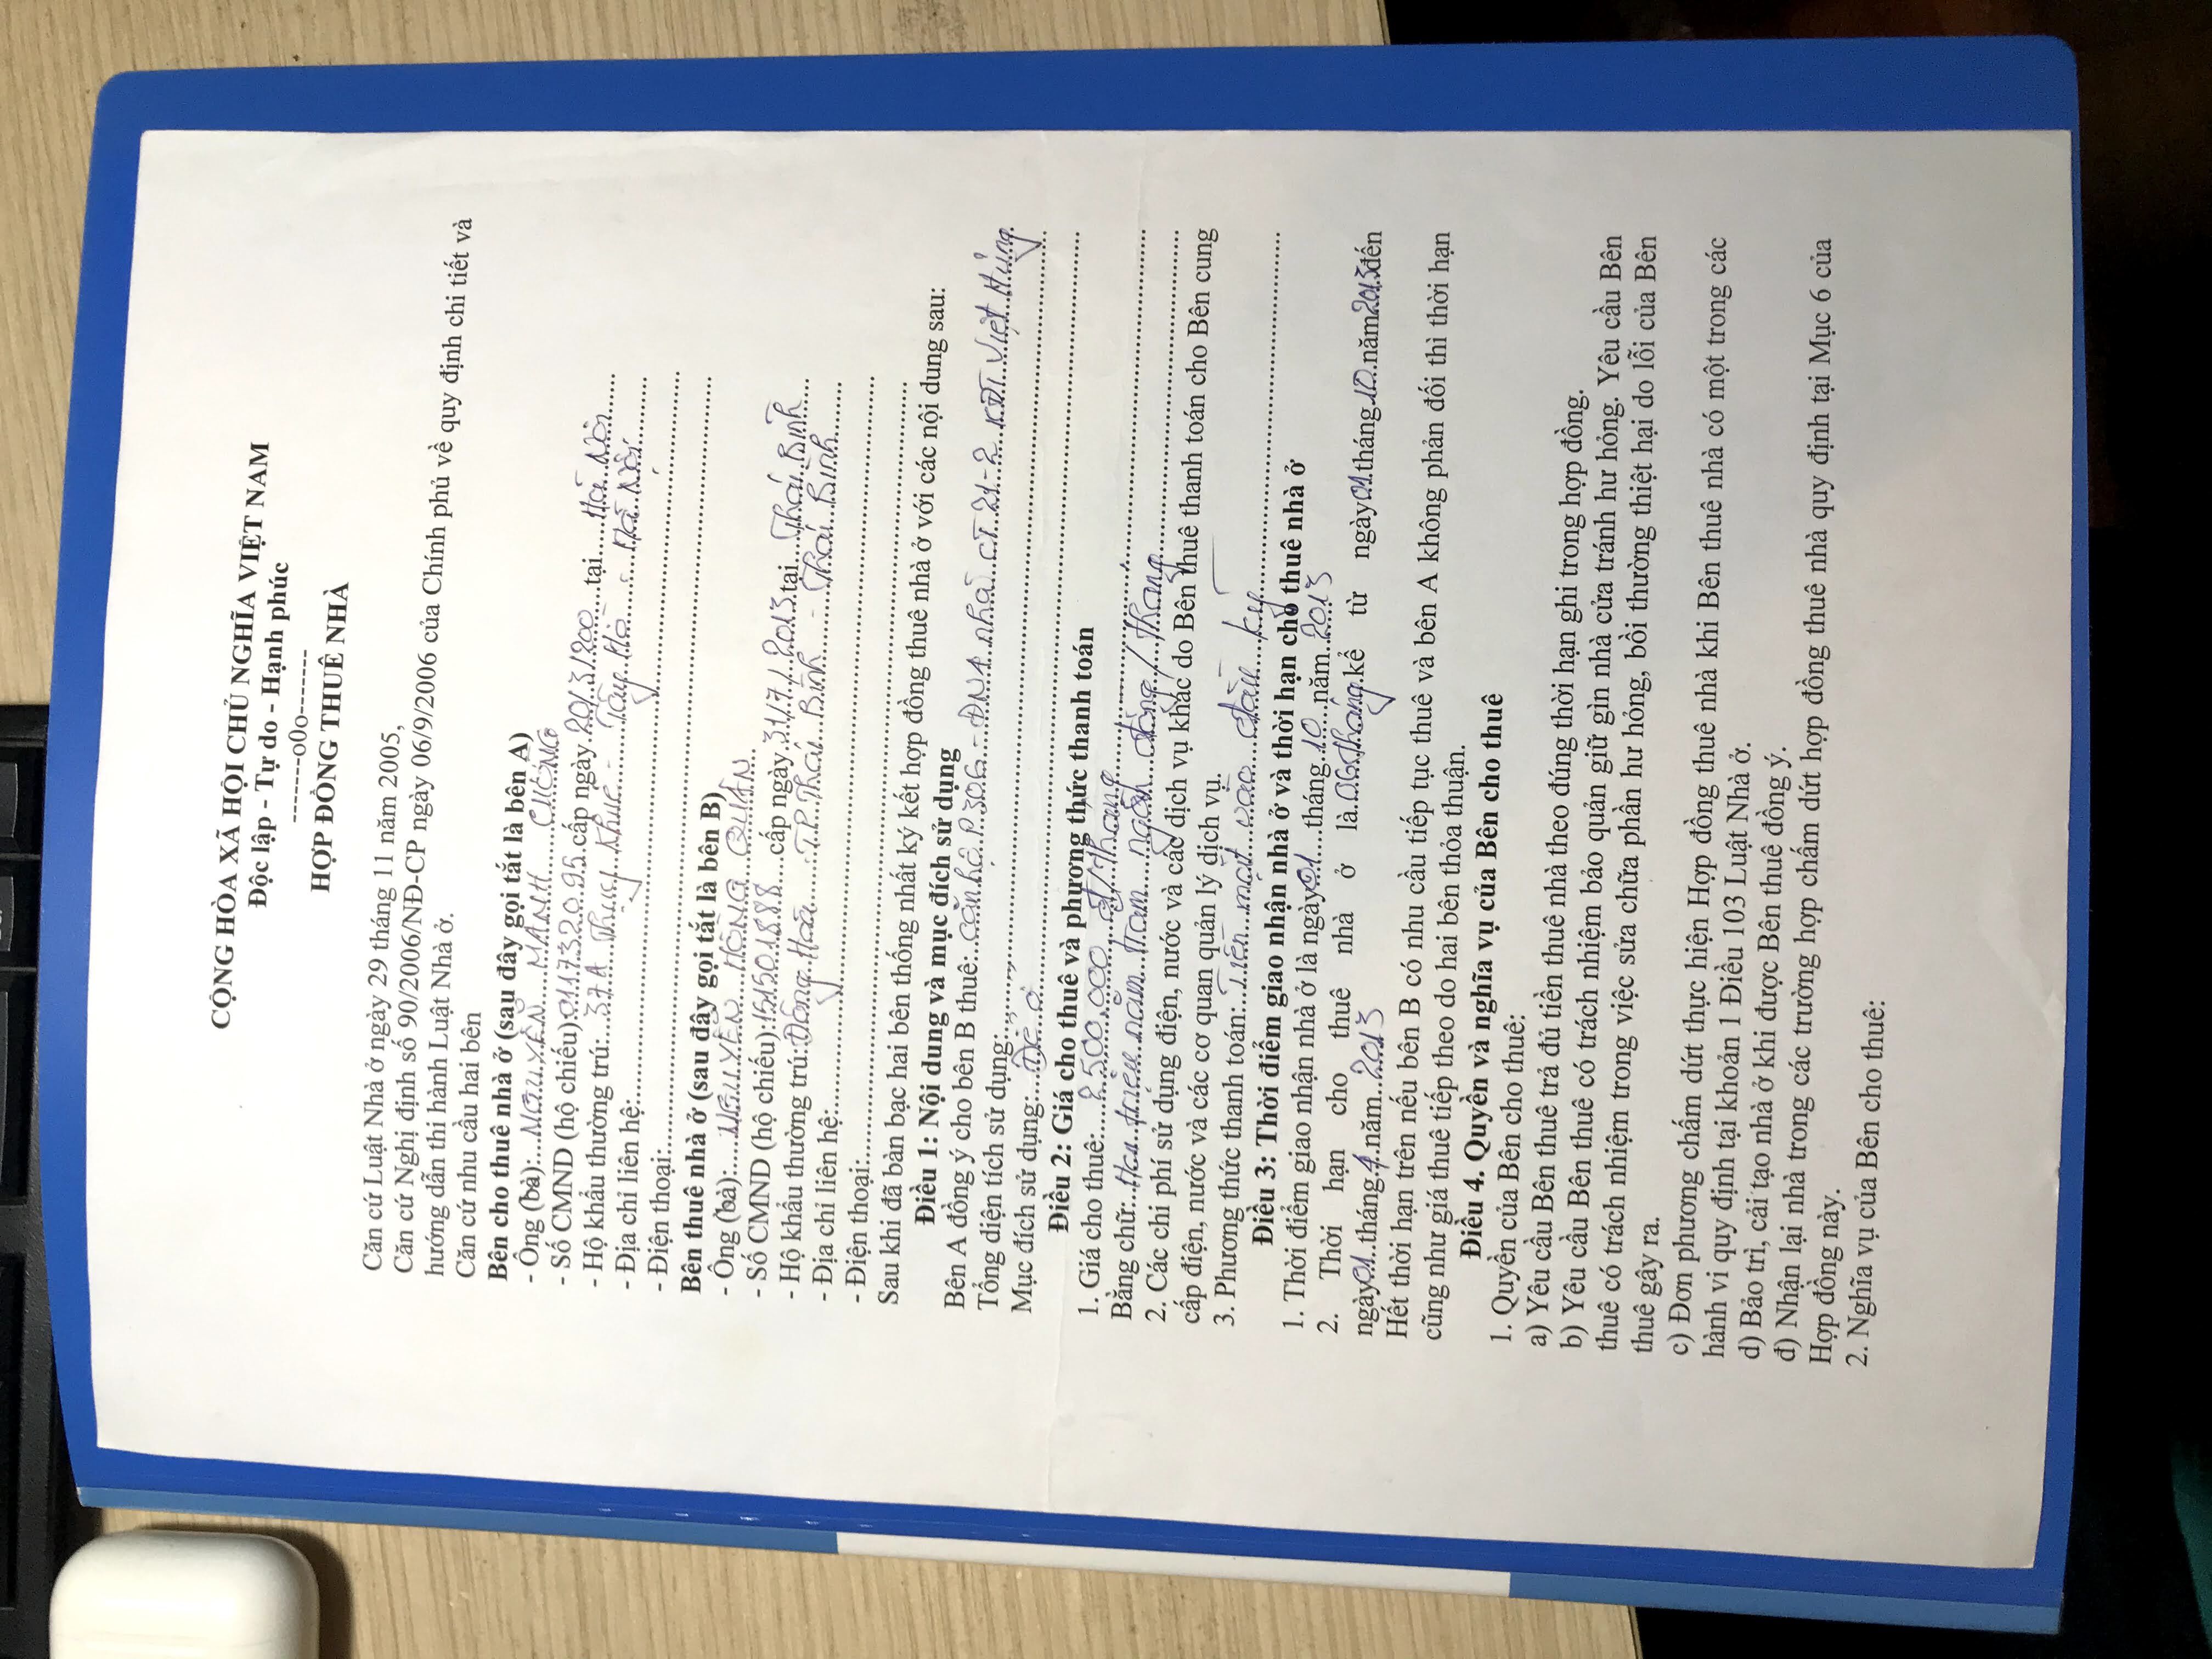 CỘNG HÒA XÃ HỘI CHỦ NGHĨA VIỆT NAM
Độc lập - Tự do - Hạnh phúc
-------o0o-------
HỢP ĐỒNG THUÊ NHÀ
Căn cứ Luật Nhà ở ngày 29 tháng 11 năm 2005,
Căn cứ Nghị định số 90/2006/NĐ-CP ngày 06/9/2006 của Chính phủ về quy định chi tiết và
hướng dẫn thi hành Luật Nhà ở.
Căn cứ nhu cầu hai bên
Bên cho thuê nhà ở (sau đây gọi tắt là bên A)
- Ông (bà):...NGUYỄN MẠNH CƯỜNG
- Số CMND (hộ chiếu):011732095.cấp ngày.20/3/200....tại.....Hà Nội......
- Hộ khẩu thường trú:...37A Thụy Khuê - Tây Hồ - Hà Nội..........
- Địa chỉ liên hệ:..........
- Điện thoại:..........
Bên thuê nhà ở (sau đây gọi tắt là bên B)
- Ông (bà):.....NGUYỄN HỒNG QUÂN
- Số CMND (hộ chiếu):151501888....cấp ngày.31/7/2013.tại....Thái Bình...
- Hộ khẩu thường trú:Đông Hoà - TP Thái Bình - Thái Bình........
- Địa chỉ liên hệ:..........
- Điện thoại:..........
Sau khi đã bàn bạc hai bên thống nhất ký kết hợp đồng thuê nhà ở với các nội dung sau:
Điều 1: Nội dung và mục đích sử dụng
Bên A đồng ý cho bên B thuê:..căn hộ P.306 - ĐN1 nhà CT 21-2 KĐT Việt Hưng.
Tổng diện tích sử dụng:..........
Mục đích sử dụng:....Để ở..........
Điều 2: Giá cho thuê và phương thức thanh toán
1. Giá cho thuê:....2500.000 đ/tháng..........
Bằng chữ:..Hai triệu năm trăm ngàn đồng/tháng..........
2. Các chi phí sử dụng điện, nước và các dịch vụ khác do Bên thuê thanh toán cho Bên cung
cấp điện, nước và các cơ quan quản lý dịch vụ.
3. Phương thức thanh toán:..Tiền mặt vào đầu kỳ..........
Điều 3: Thời điểm giao nhận nhà ở và thời hạn cho thuê nhà ở
1. Thời điểm giao nhận nhà ở là ngày01....tháng..10...năm..2013
2. Thời hạn cho thuê nhà ở là.06 tháng.kể từ ngày01.tháng.10.năm2013đến
ngày01...tháng.4.năm..2013
Hết thời hạn trên nếu bên B có nhu cầu tiếp tục thuê và bên A không phản đối thì thời hạn
cũng như giá thuê tiếp theo do hai bên thỏa thuận.
Điều 4. Quyền và nghĩa vụ của Bên cho thuê
1. Quyền của Bên cho thuê:
a) Yêu cầu Bên thuê trả đủ tiền thuê nhà theo đúng thời hạn ghi trong hợp đồng.
b) Yêu cầu Bên thuê có trách nhiệm bảo quản giữ gìn nhà cửa tránh hư hỏng. Yêu cầu Bên
thuê có trách nhiệm trong việc sửa chữa phần hư hỏng, bồi thường thiệt hại do lỗi của Bên
thuê gây ra.
c) Đơn phương chấm dứt thực hiện Hợp đồng thuê nhà khi Bên thuê nhà có một trong các
hành vi quy định tại khoản 1 Điều 103 Luật Nhà ở.
d) Bảo trì, cải tạo nhà ở khi được Bên thuê đồng ý.
đ) Nhận lại nhà trong các trường hợp chấm dứt hợp đồng thuê nhà quy định tại Mục 6 của
Hợp đồng này.
2. Nghĩa vụ của Bên cho thuê: